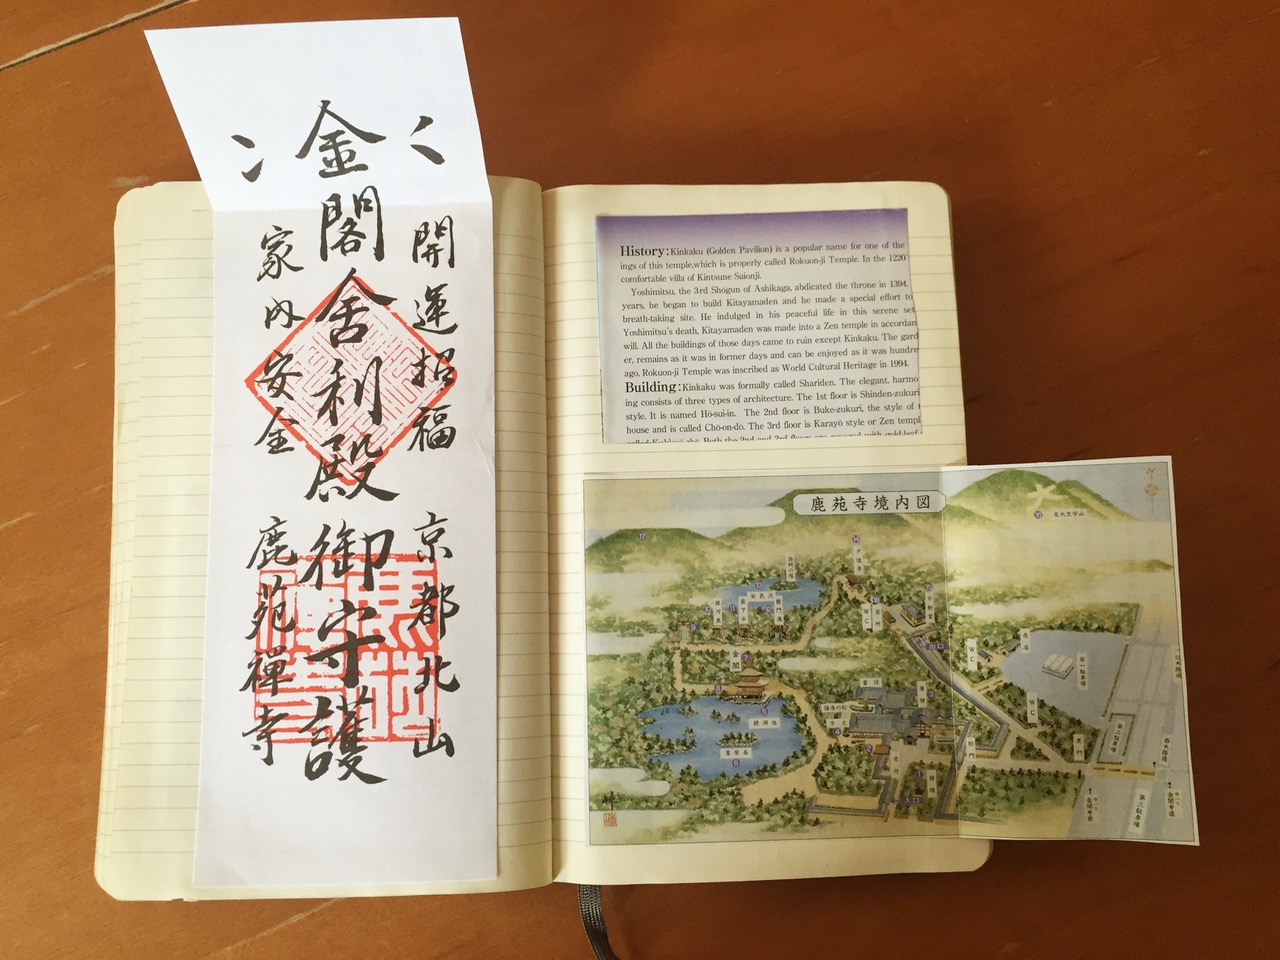 金閣舎利殿御守護
開運招福
京都北山
家内安全
鹿苑禅寺
History:Kinkaku (Golden Pavilion) is a popular name for one of the
ings of this temple,which is properly called Rokuon-ji Temple. In the 1220'
comfortable villa of Kintsune Saionji.
Yoshimitsu, the 3rd Shogun of Ashikaga, abdicated the throne in 1394.
years, he began to build Kitayamaden and he made a special effort to
breath-taking site. He indulged in his peaceful life in this serene set
Yoshimitsu's death, Kitayamaden was made into a Zen temple in accordan
will. All the buildings of those days came to ruin except Kinkaku. The gard
er, remains as it was in former days and can be enjoyed as it was hundre
ago. Rokuon-ji Temple was inscribed as World Cultural Heritage in 1994.
Building:Kinkaku was formally called Shariden. The elegant, harmo
ing consists of three types of architecture. The 1st floor is Shinden-zukuri
style. It is named Hō-sui-in. The 2nd floor is Buke-zukuri, the style of
house and is called Chō-on-dō. The 3rd floor is Karayō style or Zen templ
鹿苑寺境内図
左大文字山
夕佳亭
安民沢
龍門滝
銀河泉
WC
不動堂
金閣
鏡湖池
葦原島
書院
方丈
庫裡
鐘楼
総門
黒門
売店
WC
WC
第一駐車場
第二駐車場
第三駐車場
西大路通
バス 金閣寺前
バス 金閣寺道